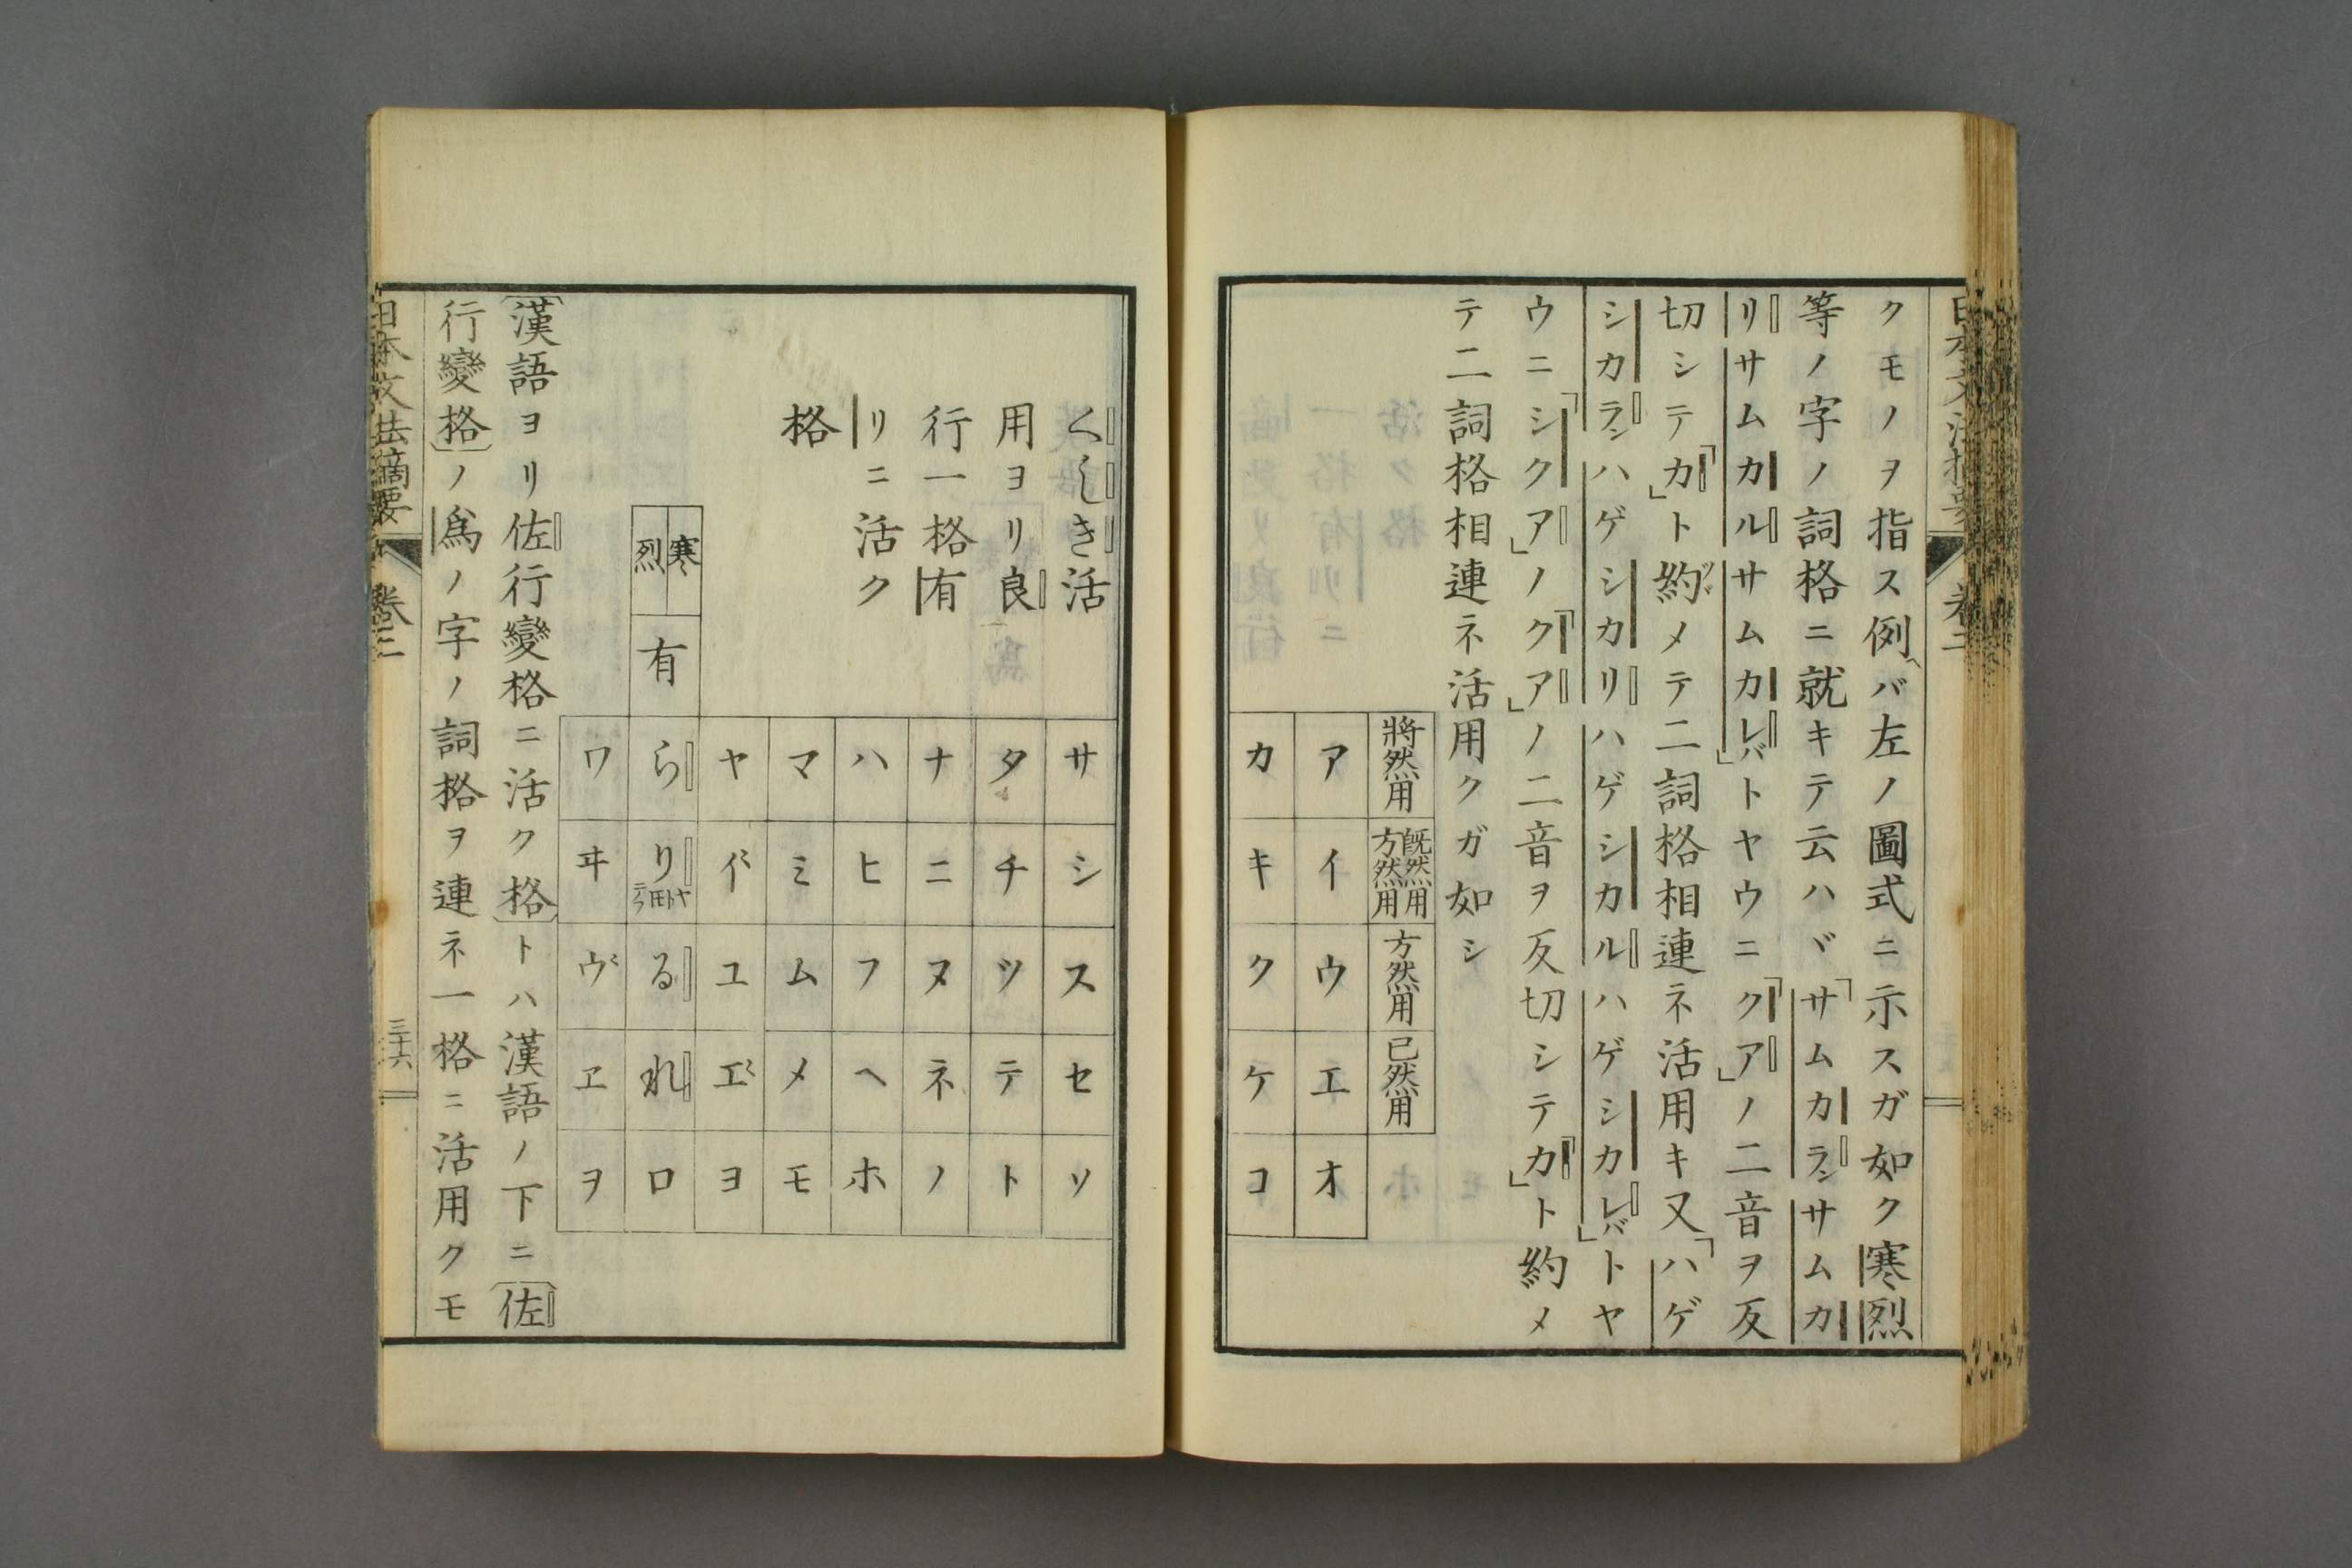 クモノヲ指ス例ヘバ左ノ圖式ニ示スガ如ク寒烈
等ノ字ノ詞格ニ就キテ云ハヾ「サムカラン サムカ
リ サムカル サムカレバ」トヤウニ「クア」ノ二音ヲ反
切シテ「カ」ト約メテ二詞格相連ネ活用キ又「ハゲ
シカラン ハゲシカリ ハゲシカル ハゲシカレバ」トヤ
ウニ「シクア」ノ「クア」ノ二音ヲ反切シテ「カ」ト約メ
テ二詞格相連ネ活用クガ如シ
將然用 既然用 方然用 方然用 已然用
ア イ ウ エ オ
カ キ ク ケ コ
くしき活
用ヨリ良
行一格有
リニ活ク
格
サ シ ス セ ソ
タ チ ツ テ ト
ナ ニ ヌ ネ ノ
ハ ヒ フ ヘ ホ
マ ミ ム メ モ
ヤ イ ユ エ ヨ
寒 烈 有 ら り る れ ロ
ワ ヰ ウ ヱ ヲ
漢語ヨリ佐行變格ニ活ク格トハ漢語ノ下ニ佐
行變格ノ爲ノ字ノ詞格ヲ連ネ一格ニ活用クモ
日本文法摘要 卷二 三十六